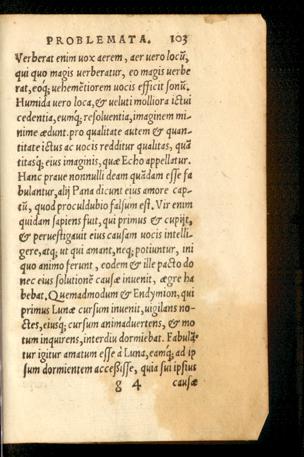 PROBLEMATA. 103
Verberat enim vox aerem, aer vero locũ,
qui quo magis verberatur, eo magis verbe
rat, eoq́; vehemẽtiorem vocis efficit sonũ.
Humida vero loca, & veluti molliora ictui
cedentia, eumq́; resolventia, imaginem mi-
nime ædunt. pro qualitate autem & quan-
titate ictus ac vocis redditur qualitas, quã
titasq́; eius imaginis, quæ Echo appellatur.
Hanc prave nonnulli deam quãdam esse fa
bulantur, alij Pana dicunt eius amore cap-
tũ, quod proculdubio falsum est. Vir enim
quidam sapiens fuit, qui primus & cupijt,
& pervestigavit eius causam vocis intelli-
gere, atq; ut qui amant, neq; potiuntur, ini
quo animo ferunt, eodem & ille pacto do
nec eius solutionẽ causæ invenit, ægre ha
bebat. Quemadmodum & Endymion, qui
primus Lunæ cursum invenit, vigilans no-
ctes, eiusq́; cursum animadvertens, & mo
tum inquirens, interdiu dormiebat. Fabulã
tur igitur amatum esse à Luna, eamq́; ad ip
sum dormientem accessisse, quia sui ipsius
g 4 causæ